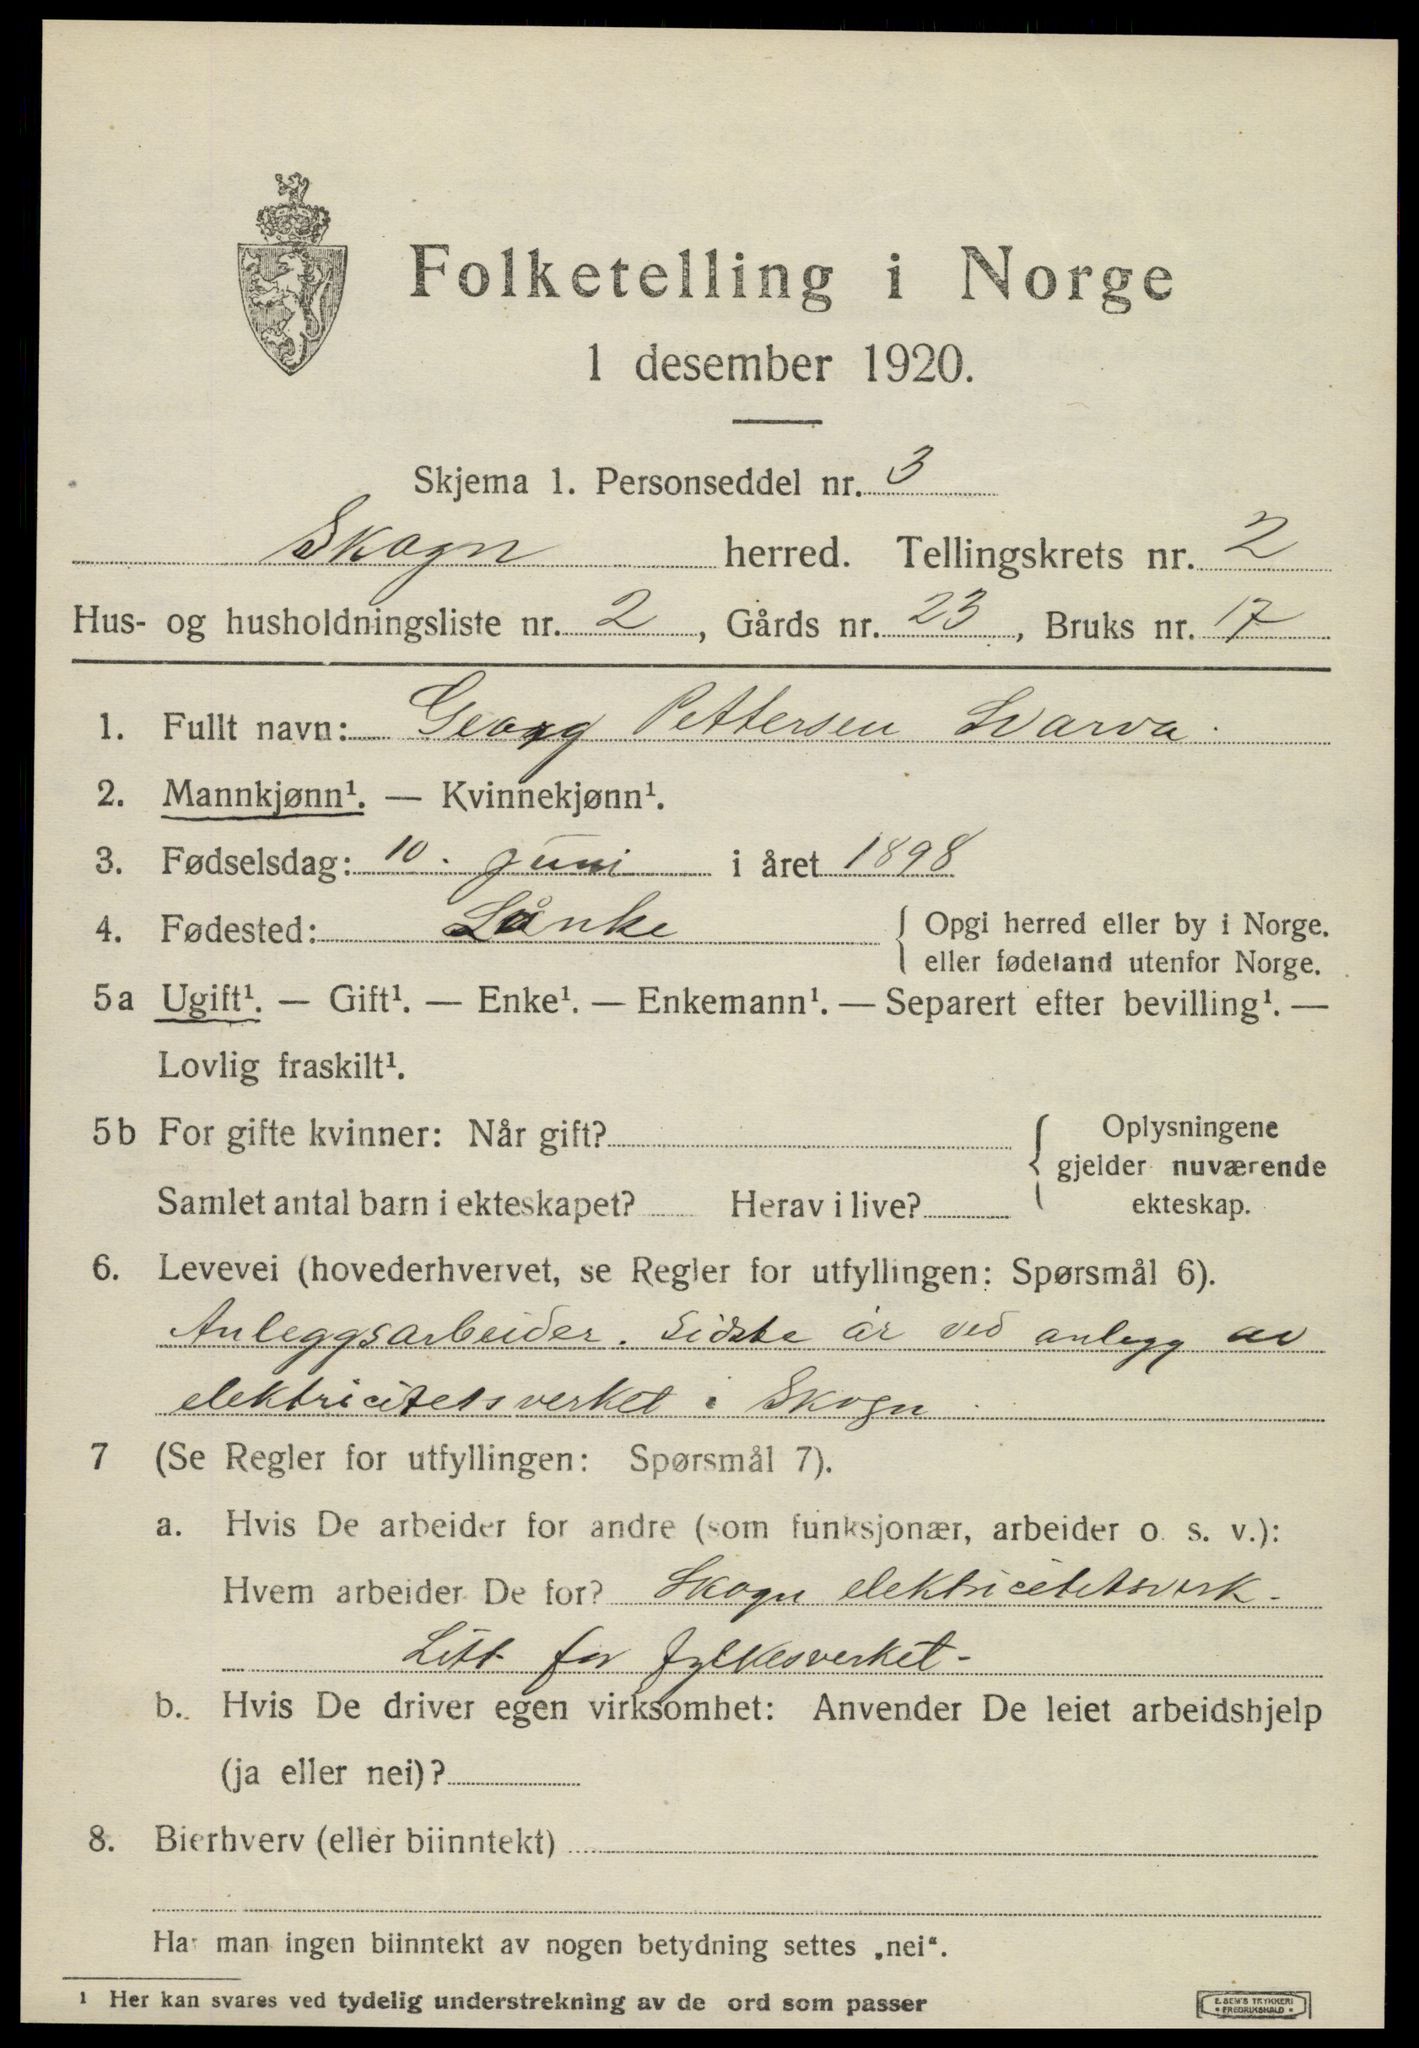 Folketelling i Norge
1 desember 1920.
Skjema 1. Personseddel nr. 3
Skogn herred. Tellingskrets nr. 2
Hus- og husholdningsliste nr. 2, Gårds nr. 23, Bruks nr. 17
1. Fullt navn: Georg Pettersen Svarva.
2. Mannkjønn¹. — Kvinnekjønn¹.
3. Fødselsdag: 10. juni i året 1898
4. Fødested: Lånke { Opgi herred eller by i Norge.
eller fødeland utenfor Norge.
5a Ugift¹. — Gift¹. — Enke¹. — Enkemann¹. — Separert efter bevilling¹. —
Lovlig fraskilt¹.
5b For gifte kvinner: Når gift? { Oplysningene
gjelder nuværende
Samlet antal barn i ekteskapet? Herav i live? ekteskap.
6. Levevei (hovederhvervet, se Regler for utfyllingen: Spørsmål 6).
Anleggsarbeider. Sidste år ved anlegg av
elektricitetsverket i Skogn.
7 (Se Regler for utfyllingen: Spørsmål 7).
a. Hvis De arbeider for andre (som funksjonær, arbeider o. s. v.):
Hvem arbeider De for? Skogn elektricitetsverk -
Litt for fylkesverket -
b. Hvis De driver egen virksomhet: Anvender De leiet arbeidshjelp
(ja eller nei)?
8. Bierhverv (eller biinntekt)
Har man ingen biinntekt av nogen betydning settes „nei“.
¹ Her kan svares ved tydelig understrekning av de ord som passer
E. SEM'S TRYKKERI
• FREDRIKSHALD •